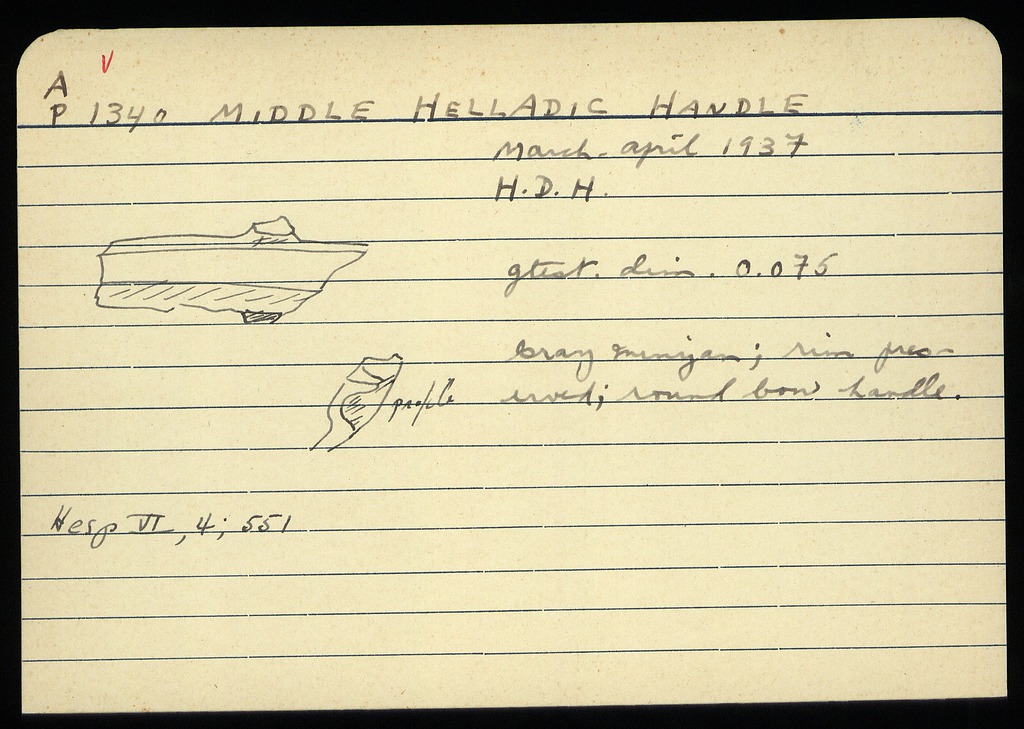 V
A
P 1340 MIDDLE HELLADIC HANDLE
March-April 1937
H.D.H.
gtest. dim. 0.075
Gray minyan; rim pres-
erved; round bow handle.
profile
Hesp VI, 4; 551